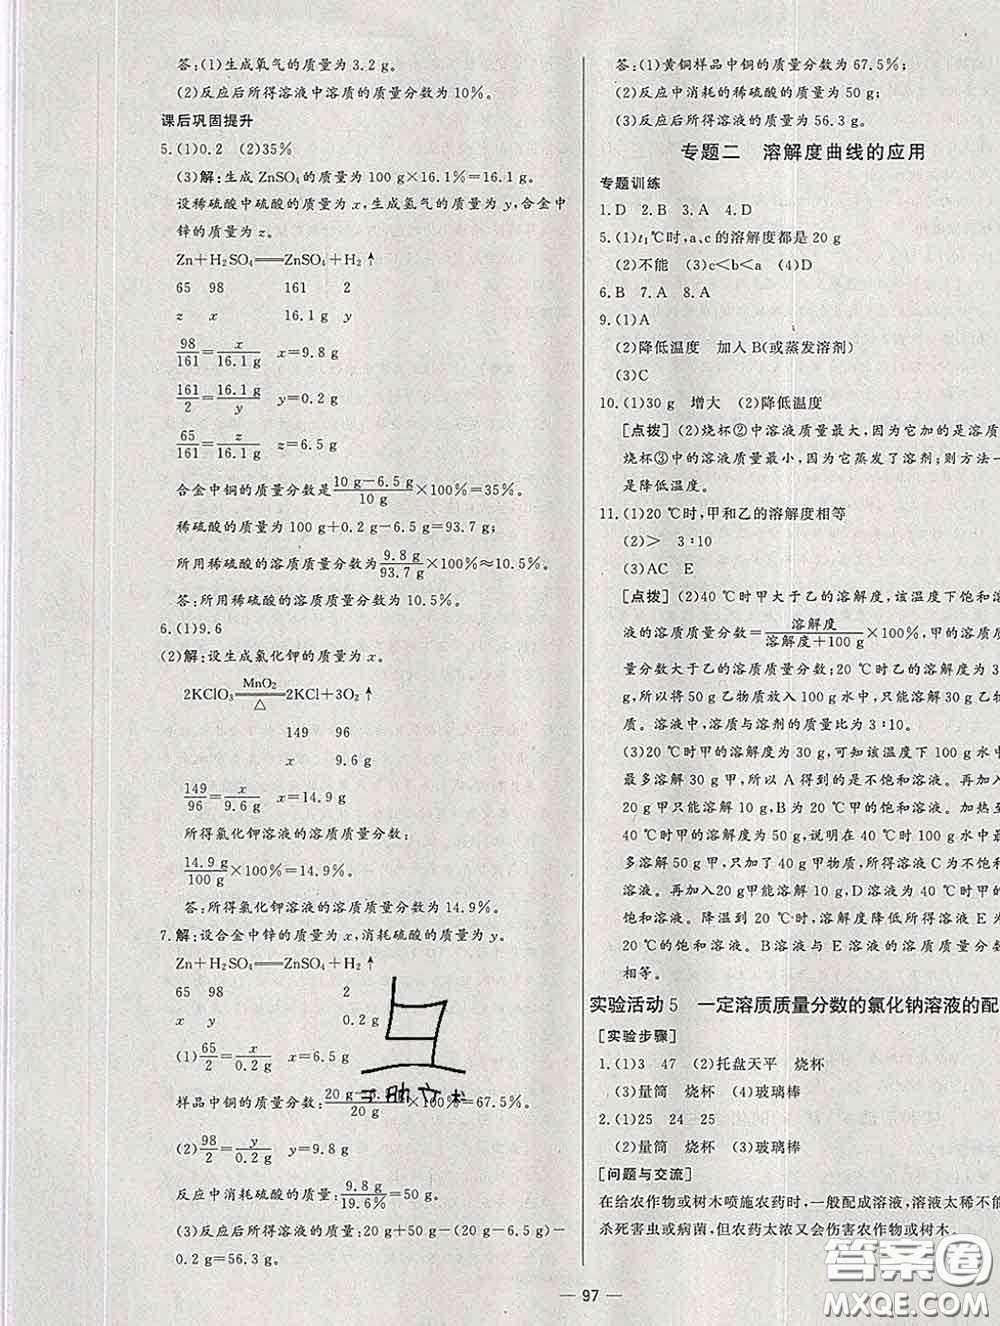 答:(1)生成氧气的质量为3.2 g。
(2)反应后所得溶液中溶质的质量分数为10%。
课后巩固提升
5.(1)0.2 (2)35%
(3)解:生成ZnSO₄的质量为100 g×16.1%=16.1 g。
设稀硫酸中硫酸的质量为x,生成氢气的质量为y,合金中
锌的质量为z。
Zn+H₂SO₄══ZnSO₄+H₂↑
65 98 161 2
z x 16.1 g y
98/161=x/16.1 g x=9.8 g
161/2=16.1 g/y y=0.2 g
65/161=z/16.1 g z=6.5 g
合金中铜的质量分数是(10 g-6.5 g)/10 g×100%=35%。
稀硫酸的质量为100 g+0.2 g-6.5 g=93.7 g;
所用稀硫酸的溶质质量分数为9.8 g/93.7 g×100%≈10.5%。
答:所用稀硫酸的溶质质量分数为10.5%。
6.(1)9.6
(2)解:设生成氯化钾的质量为x。
2KClO₃ ══MnO₂/△══ 2KCl+3O₂↑
149 96
x 9.6 g
149/96=x/9.6 g x=14.9 g
所得氯化钾溶液的溶质质量分数:
14.9 g/100 g×100%=14.9%。
答:所得氯化钾溶液的溶质质量分数为14.9%。
7.解:设合金中锌的质量为x,消耗硫酸的质量为y。
Zn+H₂SO₄══ZnSO₄+H₂↑
65 98 2
x y 0.2 g
(1)65/2=x/0.2 g x=6.5 g
样品中铜的质量分数:20 g- /20 g×100%=67.5%。
(2)98/2=y/0.2 g y=9.8 g
反应中消耗硫酸的质量:9.8 g/19.6%=50 g。
(3)反应后所得溶液的质量:20 g+50 g-(20 g-6.5 g)-
0.2 g=56.3 g。
答:(1)黄铜样品中铜的质量分数为67.5%;
(2)反应中消耗的稀硫酸的质量为50 g;
(3)反应后所得溶液的质量为56.3 g。
专题二 溶解度曲线的应用
专题训练
1.D 2.B 3.A 4.D
5.(1)t₁℃时,a、c的溶解度都是20 g
(2)不能 (3)c<b<a (4)D
6.B 7.A 8.A
9.(1)A
(2)降低温度 加入B(或蒸发溶剂)
(3)C
10.(1)30 g 增大 (2)降低温度
[点拨] (2)烧杯②中溶液质量最大,因为它加的是溶质
烧杯③中的溶液质量最小,因为它蒸发了溶剂;则方法一
是降低温度。
11.(1)20 ℃时,甲和乙的溶解度相等
(2)> 3∶10
(3)AC E
[点拨] (2)40 ℃时甲大于乙的溶解度,该温度下饱和
液的溶质质量分数=溶解度/(溶解度+100 g)×100%,甲的溶质质
量分数大于乙的溶质质量分数;20 ℃时乙的溶解度为3
g,所以将50 g乙物质放入100 g水中,只能溶解30 g乙物
质。溶液中,溶质与溶剂的质量比为3∶10。
(3)20 ℃时甲的溶解度为30 g,可知该温度下100 g水
最多溶解30 g甲,所以A得到的是不饱和溶液。再加入
20 g甲只能溶解10 g,B为20 ℃的饱和溶液。加热至
40 ℃时甲的溶解度为50 g,说明在40 ℃时100 g水中最
多溶解50 g甲,只加了40 g甲物质,所得溶液C为不饱和
溶液。再加入20 g甲能溶解10 g,D溶液为40 ℃时甲的
饱和溶液。降温到20 ℃时,溶解度降低所得溶液E为
20 ℃的饱和溶液。B溶液与E溶液的溶质质量分数
相等。
实验活动5 一定溶质质量分数的氯化钠溶液的配
[实验步骤]
1.(1)3 47 (2)托盘天平 烧杯
(3)量筒 烧杯 (4)玻璃棒
2.(1)25 24 25
(2)量筒 烧杯 (3)玻璃棒
[问题与交流]
在给农作物或树木喷施农药时,一般配成溶液,溶液太稀不能
杀死害虫或病菌,但农药太浓又会伤害农作物或树木。
— 97 —
答案圈
MXQE.COM